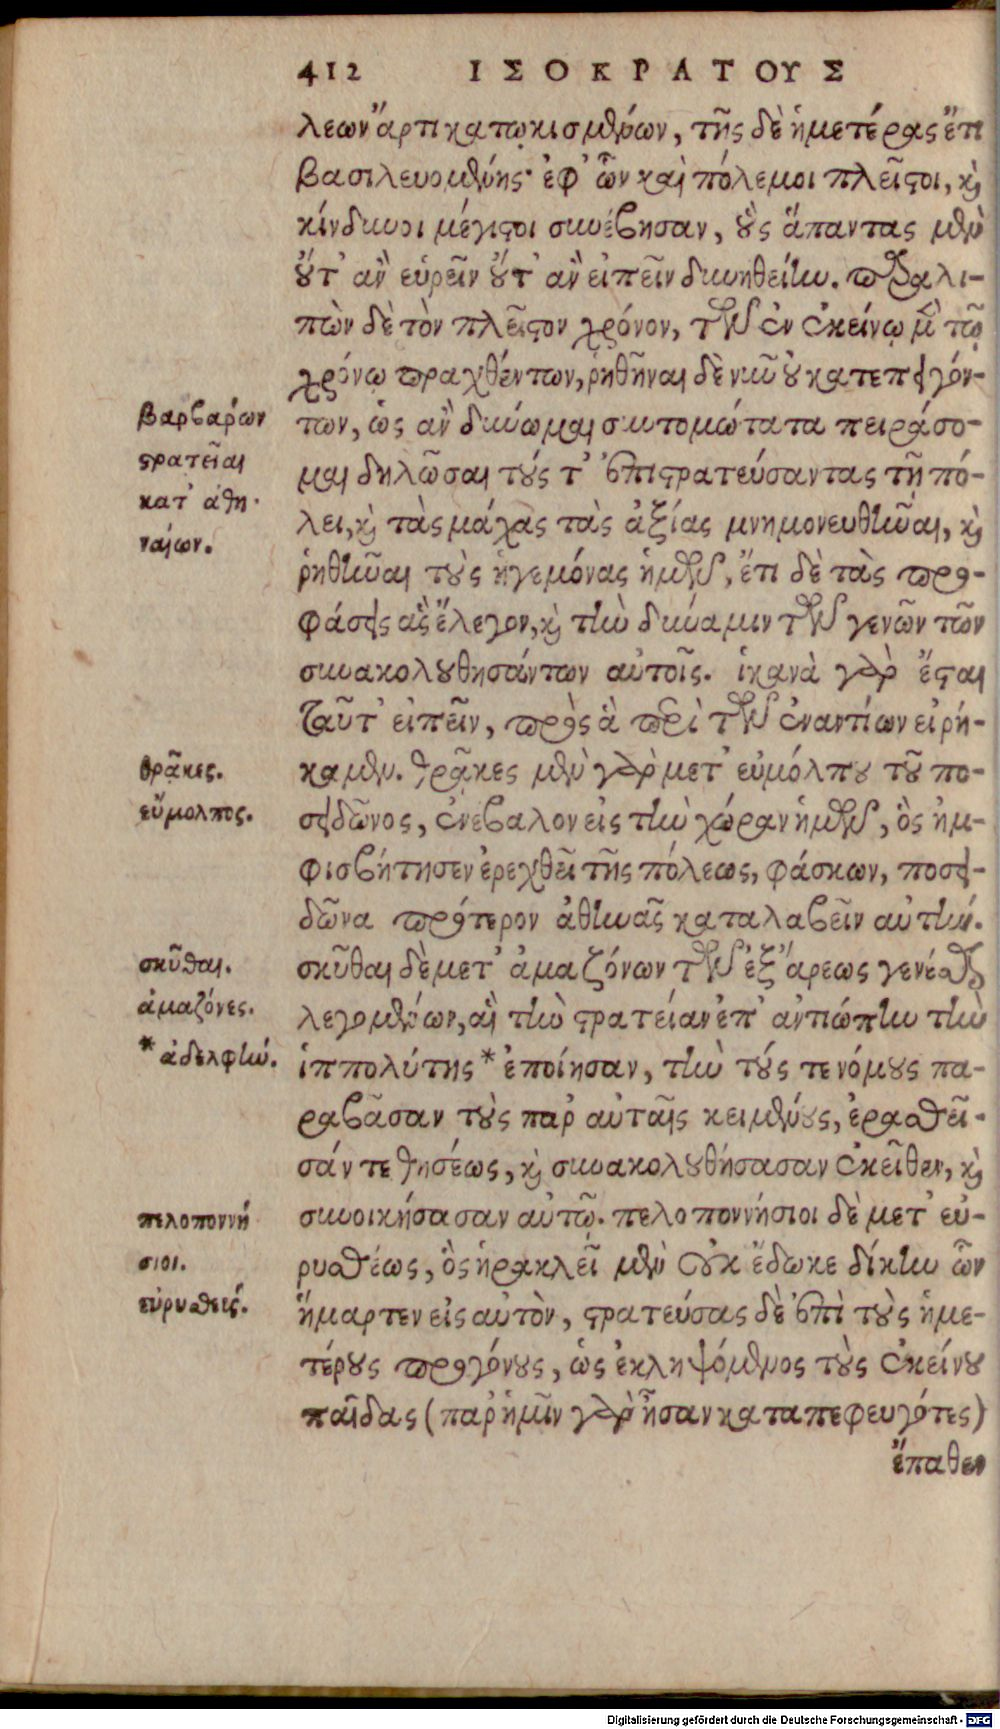 412 ΙΣΟΚΡΑΤΟΥΣ
λεων ἄρτι κατῳκισμένων, τῆς δὲ ἡμετέρας ἔτι
βασιλευομένης· ἐφ᾽ ὧν καὶ πόλεμοι πλεῖστοι, καὶ
κίνδυνοι μέγιστοι συνέβησαν, οὓς ἅπαντας μὲν
οὔτ᾽ ἂν εὑρεῖν οὔτ᾽ ἂν εἰπεῖν δυνηθείην. παραλι-
πὼν δὲ τὸν πλεῖστον χρόνον, τῶν ἐν ἐκείνῳ μὲν τῷ
χρόνῳ πραχθέντων, ῥηθῆναι δὲ νῦν οὐ κατεπειγόν-
των, ὡς ἂν δύνωμαι συντομώτατα πειράσο-
μαι δηλῶσαι τούς τ᾽ ἐπιστρατεύσαντας τῇ πό-
λει, καὶ τὰς μάχας τὰς ἀξίας μνημονευθῆναι, καὶ
ῥηθῆναι τοὺς ἡγεμόνας ἡμῶν, ἔτι δὲ τὰς προ-
φάσεις ἃς ἔλεγον, καὶ τὴν δύναμιν τῶν γενῶν τῶν
συνακολουθησάντων αὐτοῖς. ἱκανὰ γὰρ ἔσται
ταῦτ᾽ εἰπεῖν, πρὸς ἃ περὶ τῶν ἐναντίων εἰρή-
καμεν. θρᾷκες μὲν γὰρ μετ᾽ εὐμόλπου τοῦ πο-
σειδῶνος, ἐνέβαλον εἰς τὴν χώραν ἡμῶν, ὃς ἠμ-
φισβήτησεν ἐρεχθεῖ τῆς πόλεως, φάσκων, ποσει-
δῶνα πρότερον ἀθηνᾶς καταλαβεῖν αὐτήν.
σκῦθαι δὲ μετ᾽ ἀμαζόνων τῶν ἐξ ἄρεως γενέσθαι
λεγομένων, αἳ τὴν στρατείαν ἐπ᾽ ἀντιώπην τὴν
ἱππολύτης * ἐποίησαν, τὴν τούς τε νόμους πα-
ραβᾶσαν τοὺς παρ᾽ αὐταῖς κειμένους, ἐρασθεῖ-
σάν τε θησέως, καὶ συνακολουθήσασαν ἐκεῖθεν, καὶ
συνοικήσασαν αὐτῷ. πελοποννήσιοι δὲ μετ᾽ εὐ-
ρυσθέως, ὃς ἡρακλεῖ μὲν οὐκ ἔδωκε δίκην ὧν
ἥμαρτεν εἰς αὐτὸν, στρατεύσας δὲ ἐπὶ τοὺς ἡμε-
τέρους προγόνους, ὡς ἐκληψόμενος τοὺς ἐκείνου
παῖδας (παρ᾽ ἡμῖν γὰρ ἦσαν καταπεφευγότες)
ἔπαθεν
βαρβάρων
στρατεῖαι
κατ᾽ ἀθη-
ναίων.
θρᾷκες.
εὔμολπος.
σκῦθαι.
ἀμαζόνες.
* ἀδελφήν.
πελοποννή
σιοι.
εὐρυσθεύς.
Digitalisierung gefördert durch die Deutsche Forschungsgemeinschaft - DFG